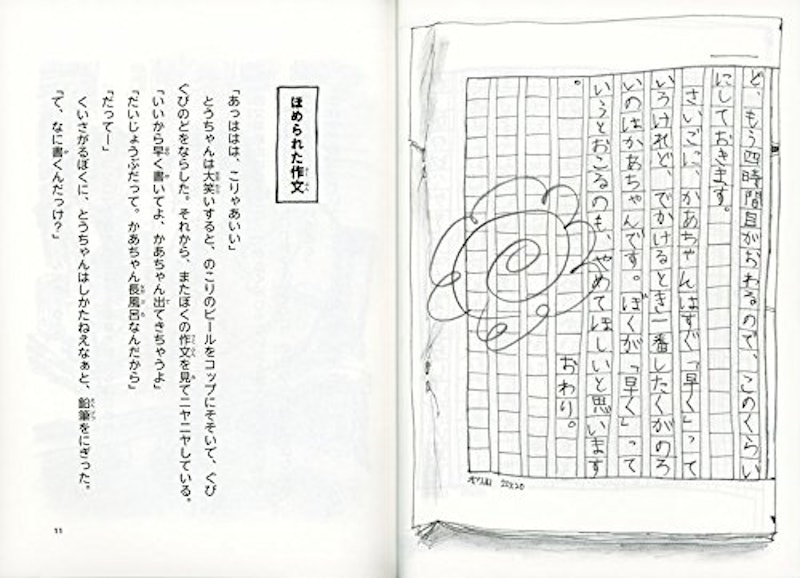 ど、もう四時間目がおわるので、このくらい
にしておきます。
さいごに、かあちゃんはすぐ「早く」って
いうけれど、でかけるとき一番したくがのろ
いのはかあちゃんです。ぼくが「早く」って
いうとおこるのも、やめてほしいと思います
。
おわり。
ほめられた作文
「あっははは、こりゃあいい」
とうちゃんは大笑いすると、のこりのビールをコップにそそいで、ぐび
ぐびのどをならした。それから、またぼくの作文を見てニヤニヤしている。
「いいから早く書いてよ、かあちゃん出てきちゃうよ」
「だいじょうぶだって。かあちゃん長風呂なんだから」
「だってー」
くいさがるぼくに、とうちゃんはしかたねえなぁと、鉛筆をにぎった。
「て、なに書くんだっけ？」
11